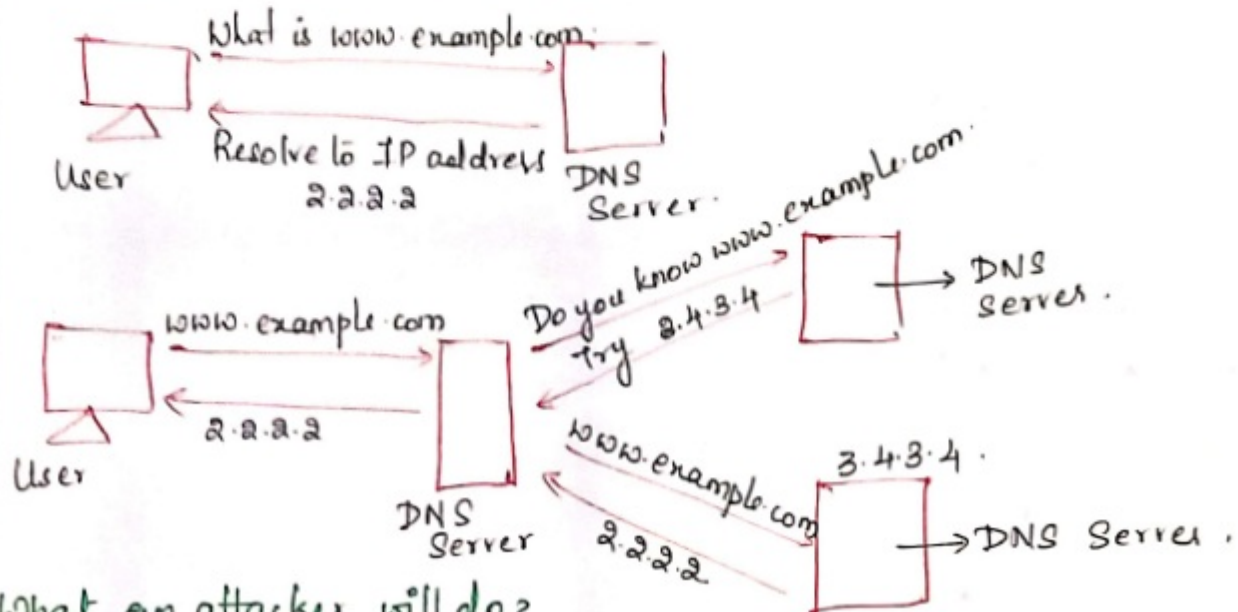 What is www.example.com.
Resolve to IP address
2.2.2.2
User
DNS
Server.
www.example.com
2.2.2.2
User
DNS
Server
Do you know www.example.com.
Try 3.4.3.4
DNS
Server.
www.example.com
2.2.2.2
3.4.3.4.
DNS Server.
What an attacker will do?